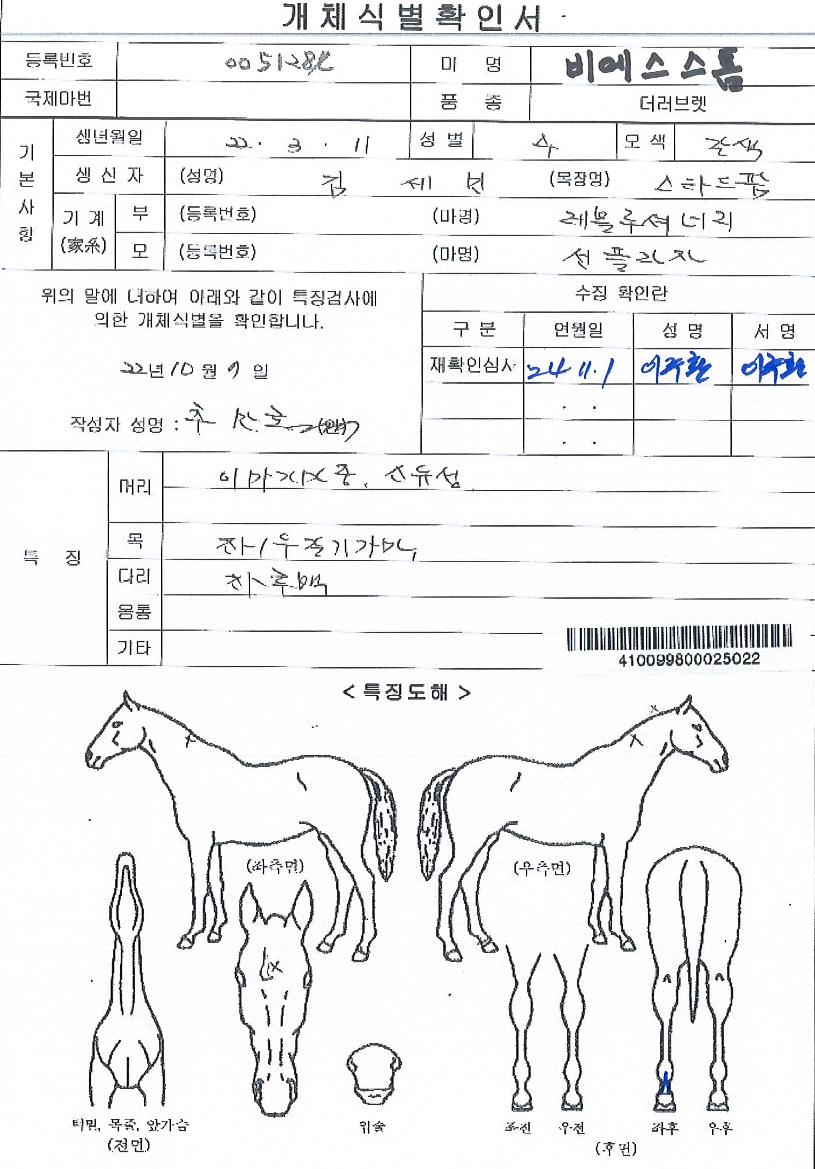 개체식별확인서
등록번호 0051282 마 명 비에스스톰
국제마번 품 종 더러브렛
기본사항
생년월일 22. 3. 11 성별 수 모색 갈색
생산자 (성명) 김 세 현 (목장명) 스타드팜
기계(家系) 부 (등록번호) (마명) 레볼루셔너리
모 (등록번호) (마명) 선플라자
위의 말에 대하여 아래와 같이 특징검사에
의한 개체식별을 확인합니다.
22년 10월 9일
작성자 성명 :
수징 확인란
구분 연월일 성명 서명
재확인심사 24 11. 1 이주환 이주환
. .
. .
특 징
머리 이마가마중, 산유성
목 좌/우줄기가마
다리 좌후백
몸통
기타
410099800025022
< 특징도해 >
(좌측면) (우측면)
턱밑, 목줄, 앞가슴
(전면)
위술
좌전 우전 좌후 우후
(후면)